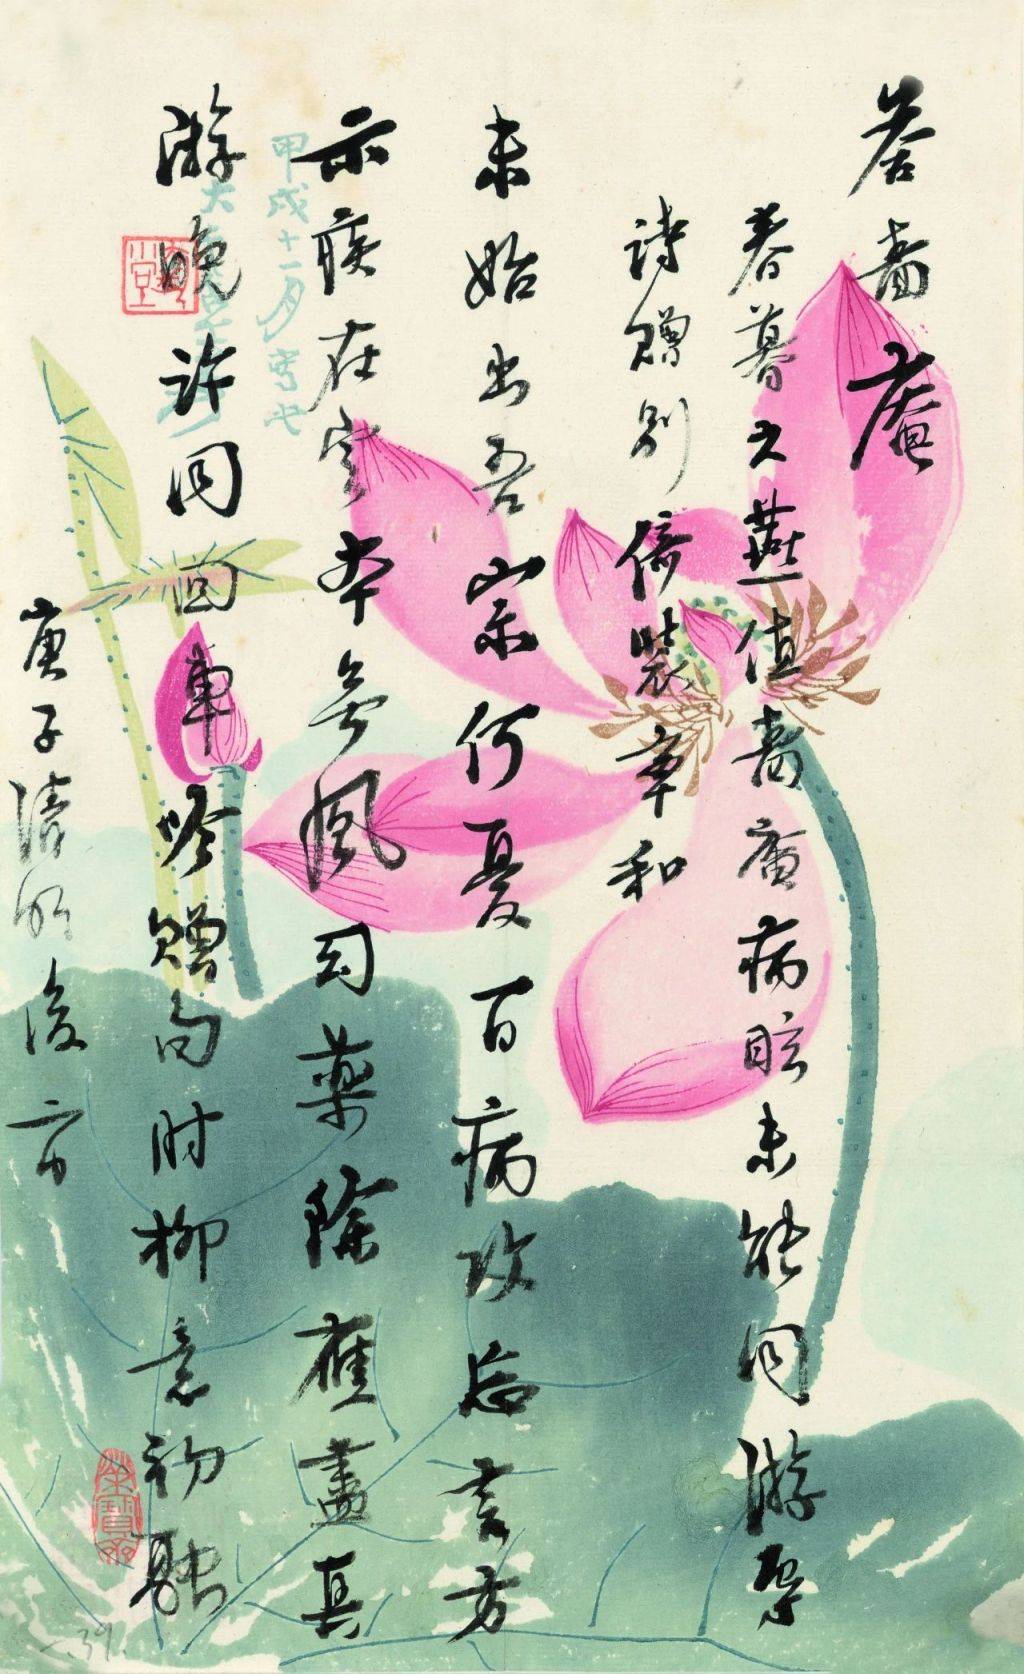 答嗇庵
春暮之燕值嗇庵病眩未能同游辱
詩贈別倚裝率和
未始出吾宗何憂百病攻忘言方
示疾在定本無風司藥除應盡真
游晚許同回車吟贈句时柳意初融
庚子清明後
甲戌十一月
大
榮寶齋
39